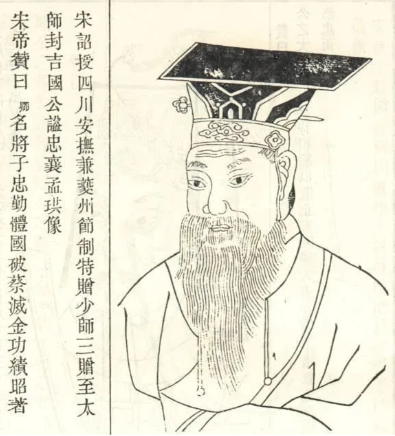 宋詔授四川安撫兼夔州節制特贈少師三贈至太
師封吉國公諡忠襄孟珙像
宋帝贊曰卿名將子忠勤體國破蔡滅金功績昭著